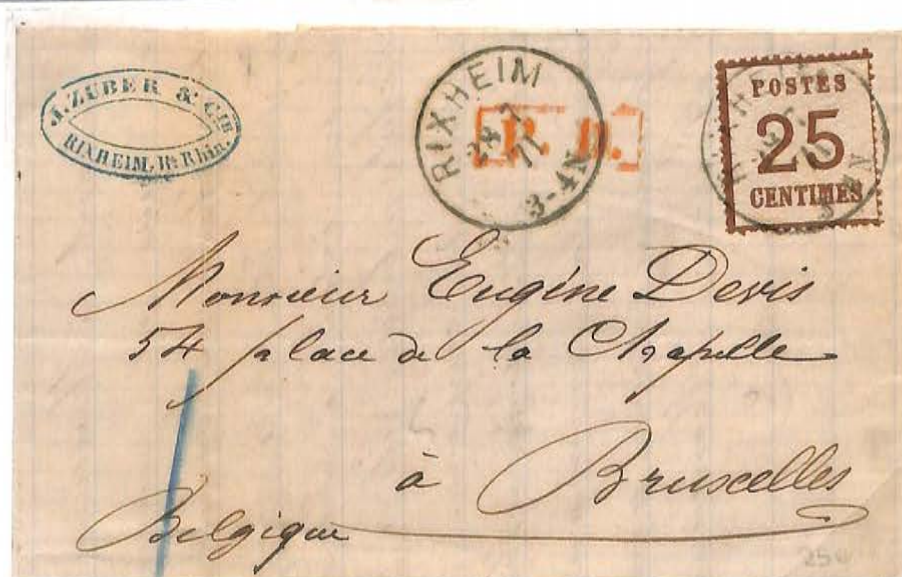 J. ZUBER & Cie
RIXHEIM, Ht Rhin.
RIXHEIM
24 7
71
3-4N
P. D.
POSTES
25
CENTIMES
Monsieur Eugéne Devis
54 place de la Chapelle
à Bruxelles
Belgique